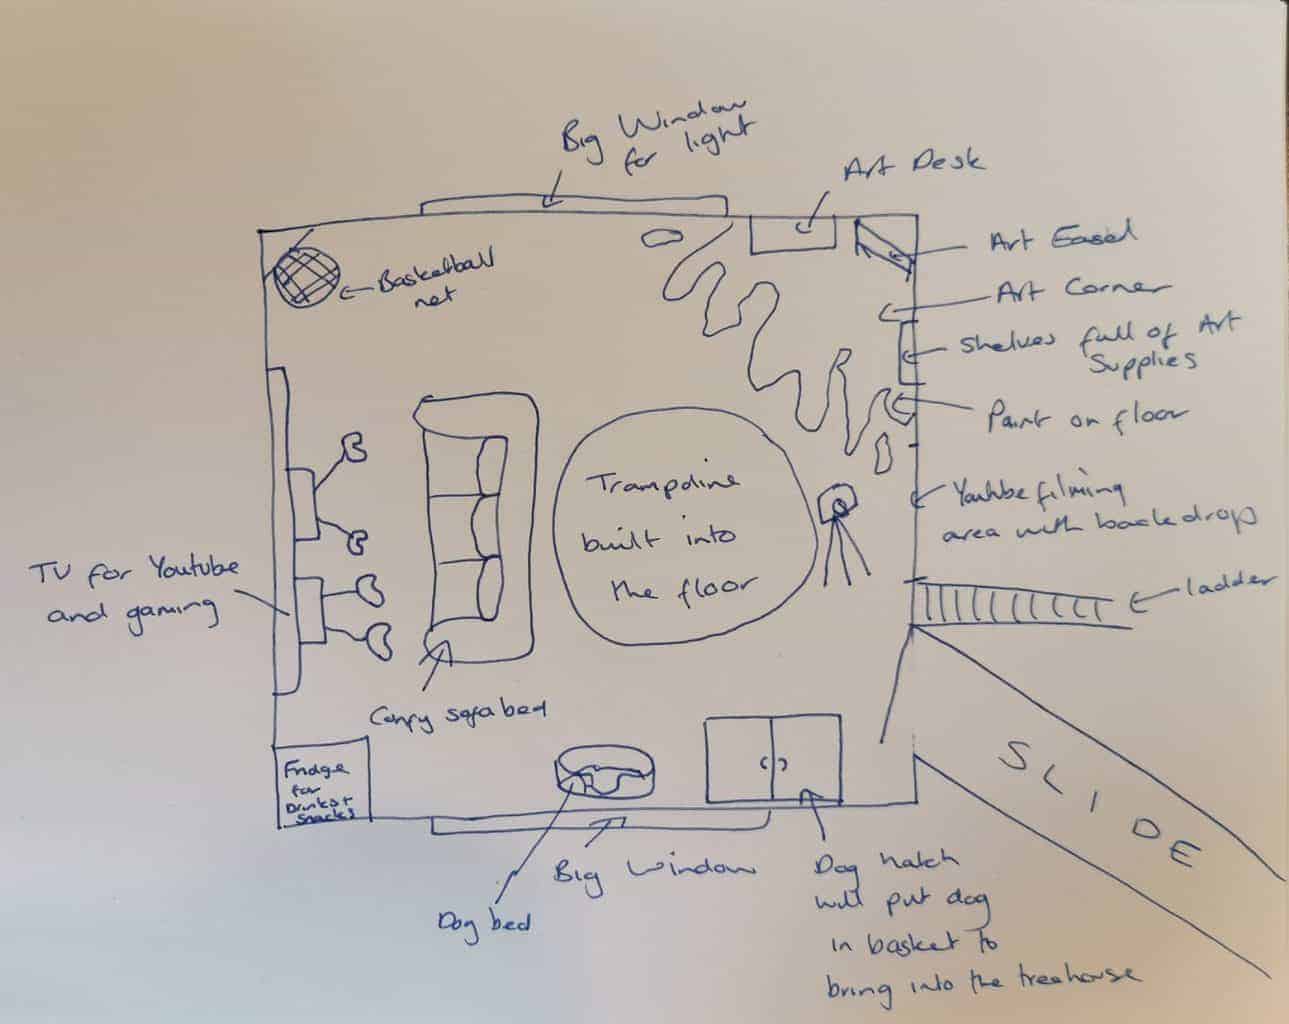 Big Window
for light
Art Desk
Art Easel
Basketball
net
Art Corner
Shelves full of Art
Supplies
Paint on floor
Trampoline
built into
the floor
Youtube filming
area with backdrop
TV for Youtube
and gaming
ladder
Comfy sofa bed
SLIDE
Fridge
for
Drinks +
Snacks
Big Window
Dog bed
Dog hatch
will put dog
in basket to
bring into the treehouse